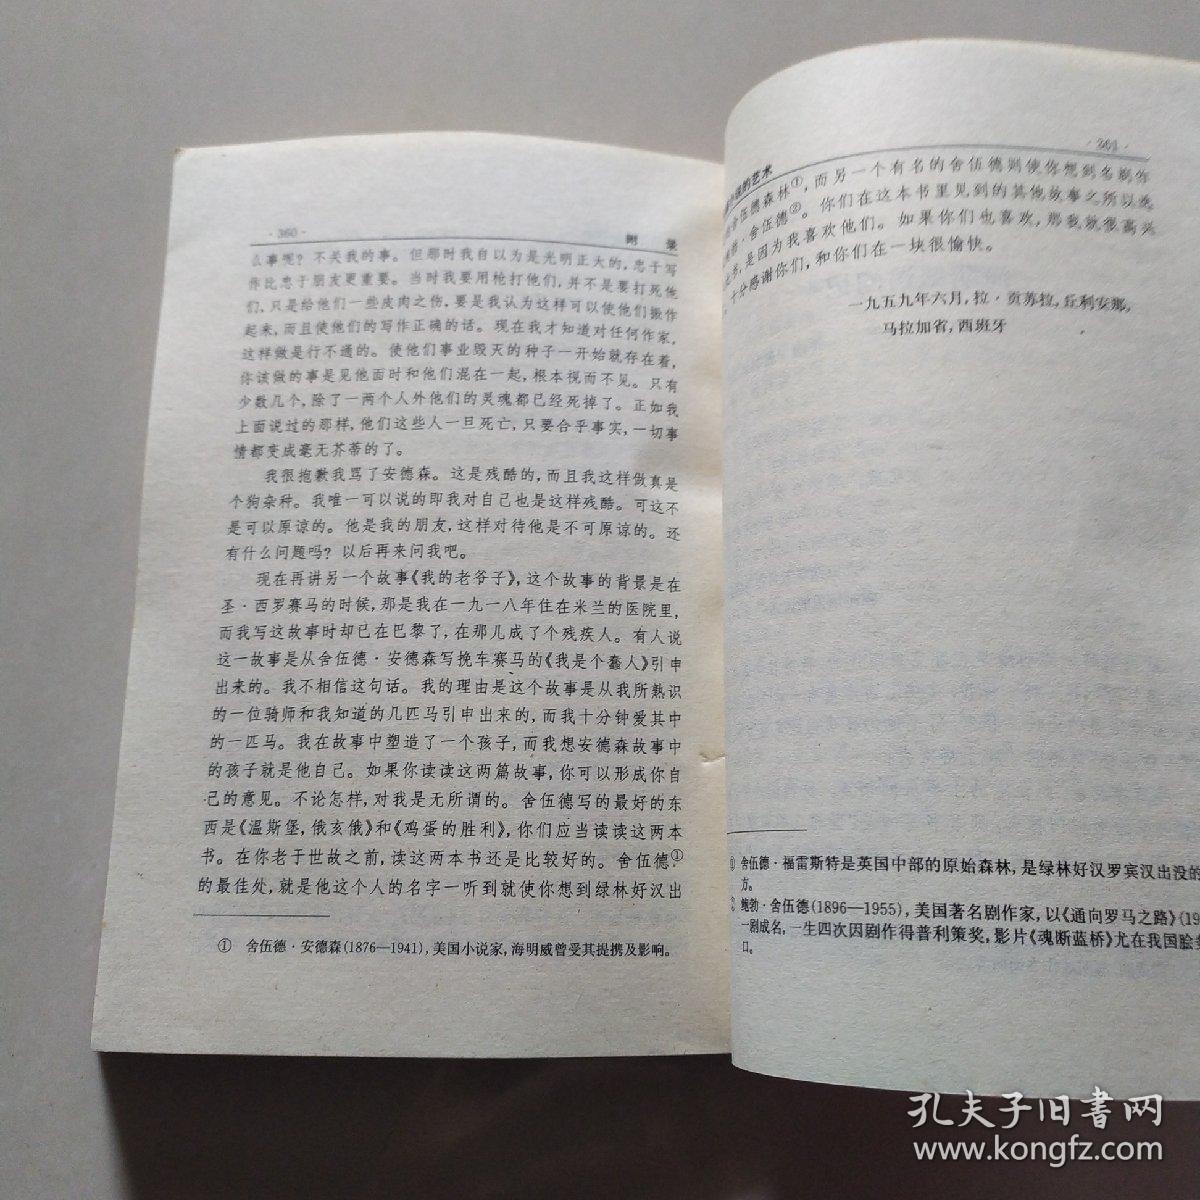 · 360 ·
附 录
么事呢？不关我的事。但那时我自以为是光明正大的，忠于写
作比忠于朋友更重要。当时我要用枪打他们，并不是要打死他
们，只是给他们一些皮肉之伤，要是我认为这样可以使他们振作
起来，而且使他们的写作正确的话。现在我才知道对任何作家，
这样做是行不通的。使他们事业毁灭的种子一开始就存在着，
你该做的事是见他面时和他们混在一起，根本视而不见。只有
少数几个，除了一两个人外他们的灵魂都已经死掉了。正如我
上面说过的那样，他们这些人一旦死亡，只要合乎事实，一切事
情都变成毫无芥蒂的了。
我很抱歉我骂了安德森。这是残酷的，而且我这样做真是
个狗杂种。我唯一可以说的即我对自己也是这样残酷。可这不
是可以原谅的。他是我的朋友，这样对待他是不可原谅的。还
有什么问题吗？以后再来问我吧。
现在再讲另一个故事《我的老爷子》，这个故事的背景是在
圣·西罗赛马的时候，那是我在一九一八年住在米兰的医院里，
而我写这故事时却已在巴黎了，在那儿成了个残疾人。有人说
这一故事是从舍伍德·安德森写挽车赛马的《我是个蠢人》引申
出来的。我不相信这句话。我的理由是这个故事是从我所熟识
的一位骑师和我知道的几匹马引申出来的，而我十分钟爱其中
的一匹马。我在故事中塑造了一个孩子，而我想安德森故事中
的孩子就是他自己。如果你读读这两篇故事，你可以形成你自
己的意见。不论怎样，对我是无所谓的。舍伍德写的最好的东
西是《温斯堡，俄亥俄》和《鸡蛋的胜利》，你们应当读读这两本
书。在你老于世故之前，读这两本书还是比较好的。舍伍德①
的最佳处，就是他这个人的名字一听到就使你想到绿林好汉出
① 舍伍德·安德森(1876—1941)，美国小说家，海明威曾受其提携及影响。
的艺术
· 361 ·
舍伍德森林①，而另一个有名的舍伍德则使你想到名剧作
·舍伍德②。你们在这本书里见到的其他故事之所以选
，是因为我喜欢他们。如果你们也喜欢，那我就很高兴
十分感谢你们，和你们在一块很愉快。
一九五九年六月，拉·贡苏拉，丘利安娜，
马拉加省，西班牙
① 舍伍德·福雷斯特是英国中部的原始森林，是绿林好汉罗宾汉出没的
方。
② 鲍勃·舍伍德(1896—1955)，美国著名剧作家，以《通向罗马之路》(19
一剧成名，一生四次因剧作得普利策奖，影片《魂断蓝桥》尤在我国脍
口。
孔夫子旧书网
www.kongfz.com